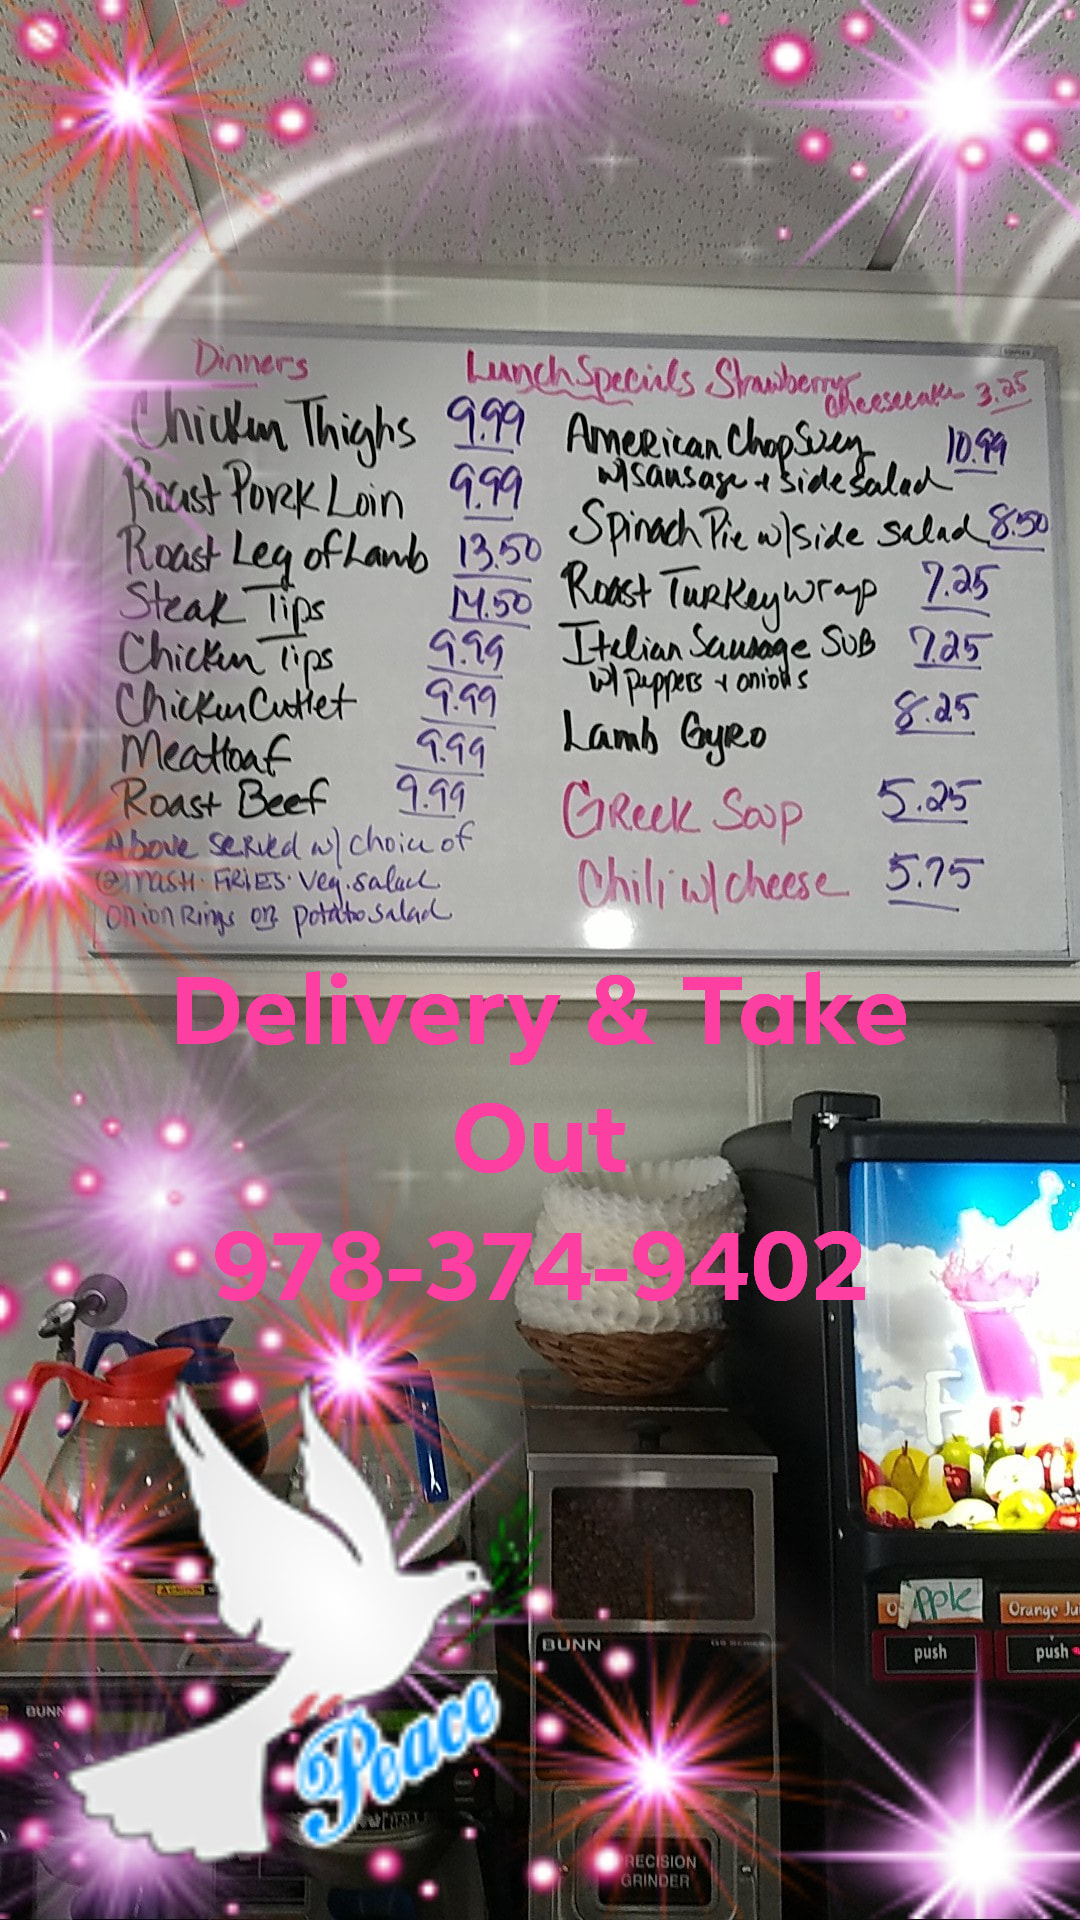 Dinners
Chicken Thighs 9.99
Roast Pork Loin 9.99
Roast Leg of Lamb 13.50
Steak Tips 14.50
Chicken Tips 9.99
Chicken Cutlet 9.99
Meatloaf 9.99
Roast Beef 9.99
Above served w/ choice of
(2) mash. FRIES. Veg. salad
Onion Rings or potato salad
Lunch Specials Strawberry
cheesecake 3.25
American Chop Suey 10.99
w/ sausage + side salad
Spinach Pie w/ side salad 8.50
Roast Turkey wrap 7.25
Italian Sausage SUB 7.25
w/ peppers + onions
Lamb Gyro 8.25
Greek Soup 5.25
Chili w/ cheese 5.75
Delivery & Take
Out
978-374-9402
Apple
Orange Ju
push
push
BUNN
BUNN
Peace
PRECISION
GRINDER